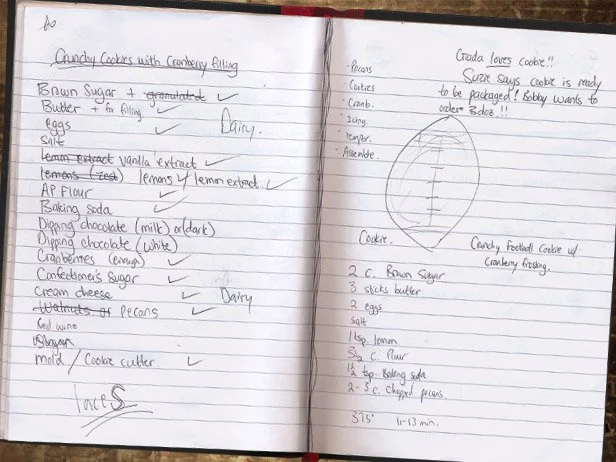 Crunchy Cookies with Cranberry filling
Brown Sugar + granulated
Butter + for filling
eggs
Dairy.
salt
Lemon extract vanilla extract
lemons (zest) lemons / lemon extract.
AP Flour
Baking soda
Dipping chocolate (milk) or (dark)
Dipping chocolate (white)
Cranberries (enough)
Confectioner's Sugar
Cream cheese
Dairy
Walnuts or pecans
Red wine
mold / Cookie cutter.
laceS
- Pecans
- Cookies
- Cranb.
- Icing
- Temper.
- Assemble.
Giada loves cookie!!
Suzie says cookie is ready
to be packaged! Bobby wants to
order 3 doz.!!
Cookie.
Crunchy Football Cookie w/
Cranberry frosting.
2 c. Brown Sugar
3 sticks butter
2 eggs
salt
1 tsp. lemon
c. flour
1½ tsp. Baking soda
2-3 c. chopped pecans.
375° 11-13 min.